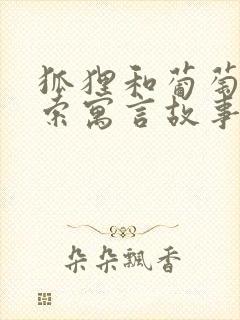 狐狸和葡萄
索寓言故事
朵朵飘香